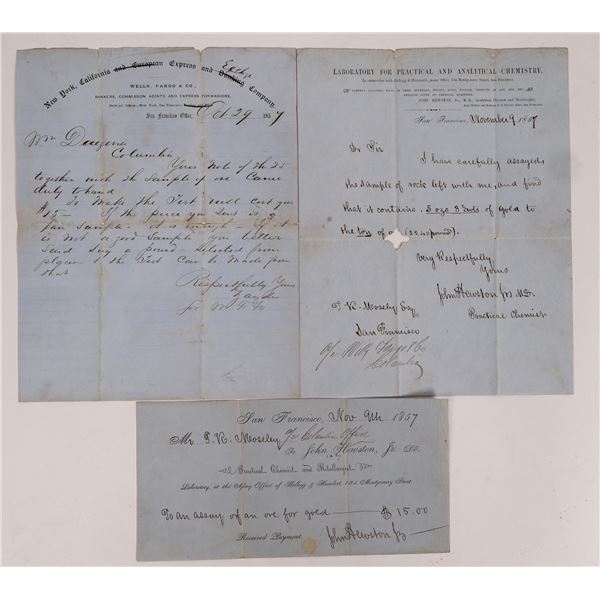 New York, California and European Express and Banking Exchg. Company,
WELLS, FARGO & CO.,
BANKERS, COMMISSION AGENTS AND EXPRESS FORWARDERS.
San Francisco Office, Oct 29 1857
Columbia
Your Note of the 25
together with the Sample of ore Came
duly to hand
To Make the Test will cost you
$15 – If the piece you Sent is a
fair Sample – it is enough – If it
is Not a good Sample you better
Send Say a pound – selected from
& the Test Can be Made from
that
Respectfully Yours
for W F & Co
LABORATORY FOR PRACTICAL AND ANALYTICAL CHEMISTRY,
In connection with Kellogg & Humbert's Assay Office, 104 Montgomery Street, San Francisco.
JOHN HEWSTON, Jr., M.D., Analytical Chemist and Metallurgist,
San Francisco, November 9 1857
Dr Sir
I have carefully assayed
the sample of rock left with me, and find
that it contains 5 ozs 3 dwts of gold to
the ton of (2240 pound).
Very Respectfully
Yours
John Hewston Jr M.D.
Practical Chemist
P. K. Mosely Esq
San Francisco
c/o Wells Fargo & Co
Columbia
San Francisco, Nov 9th 1857
Mr P. K. Moseley c/o Columbia Office
To John Hewston, Jr. Dr.
Practical Chemist and Metallurgist
Laboratory, at the Assay Office of Kellogg & Humbert, 104 Montgomery Street
To an assay of an ore for gold $15.00
Received Payment,
John Hewston Jr